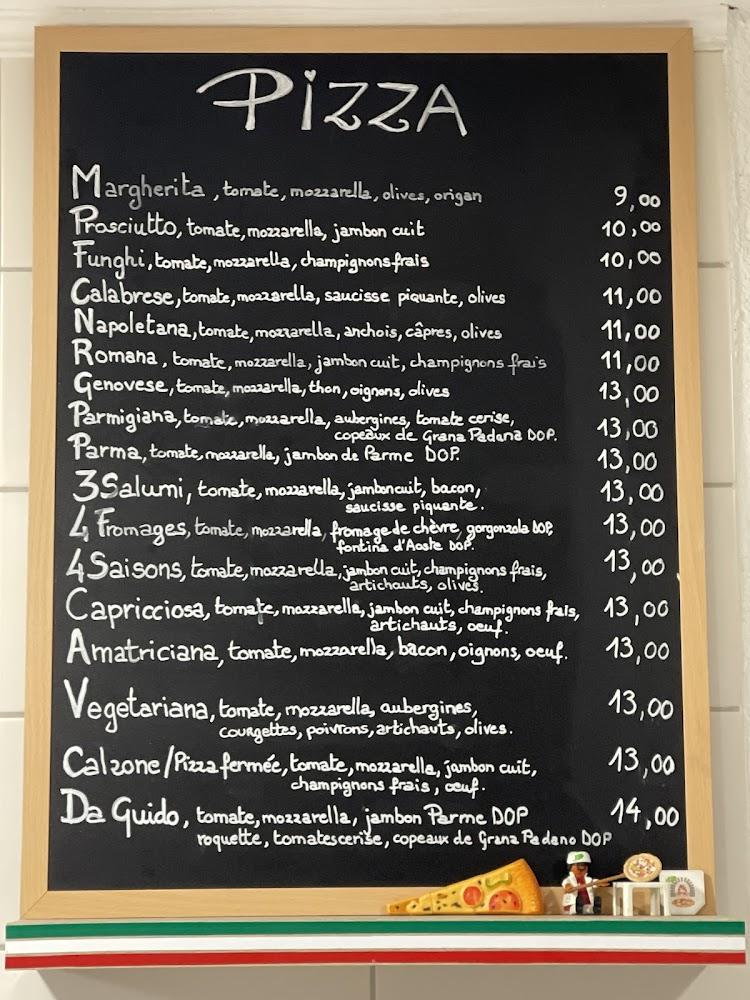 PizzA
Margherita, tomate, mozzarella, olives, origan 9,00
Prosciutto, tomate, mozzarella, jambon cuit 10,00
Funghi, tomate, mozzarella, champignons frais 10,00
Calabrese, tomate, mozzarella, saucisse piquante, olives 11,00
Napoletana, tomate, mozzarella, anchois, câpres, olives 11,00
Romana, tomate, mozzarella, jambon cuit, champignons frais 11,00
Genovese, tomate, mozzarella, thon, oignons, olives 13,00
Parmigiana, tomate, mozzarella, aubergines, tomate cerise, 13,00
copeaux de Grana Padana DOP.
Parma, tomate, mozzarella, jambon de Parme DOP. 13,00
3 Salumi, tomate, mozzarella, jambon cuit, bacon, 13,00
saucisse piquante.
4 Fromages, tomate, mozzarella, fromage de chèvre, gorgonzola DOP, 13,00
fontina d'Aoste DOP.
4 Saisons, tomate, mozzarella, jambon cuit, champignons frais, 13,00
artichauts, olives.
Capricciosa, tomate, mozzarella, jambon cuit, champignons frais, 13,00
artichauts, oeuf.
Amatriciana, tomate, mozzarella, bacon, oignons, oeuf. 13,00
Vegetariana, tomate, mozzarella, aubergines, 13,00
courgettes, poivrons, artichauts, olives.
Calzone/Pizza fermée, tomate, mozzarella, jambon cuit, 13,00
champignons frais, oeuf.
Da Guido, tomate, mozzarella, jambon Parme DOP 14,00
roquette, tomates cerise, copeaux de Grana Padano DOP